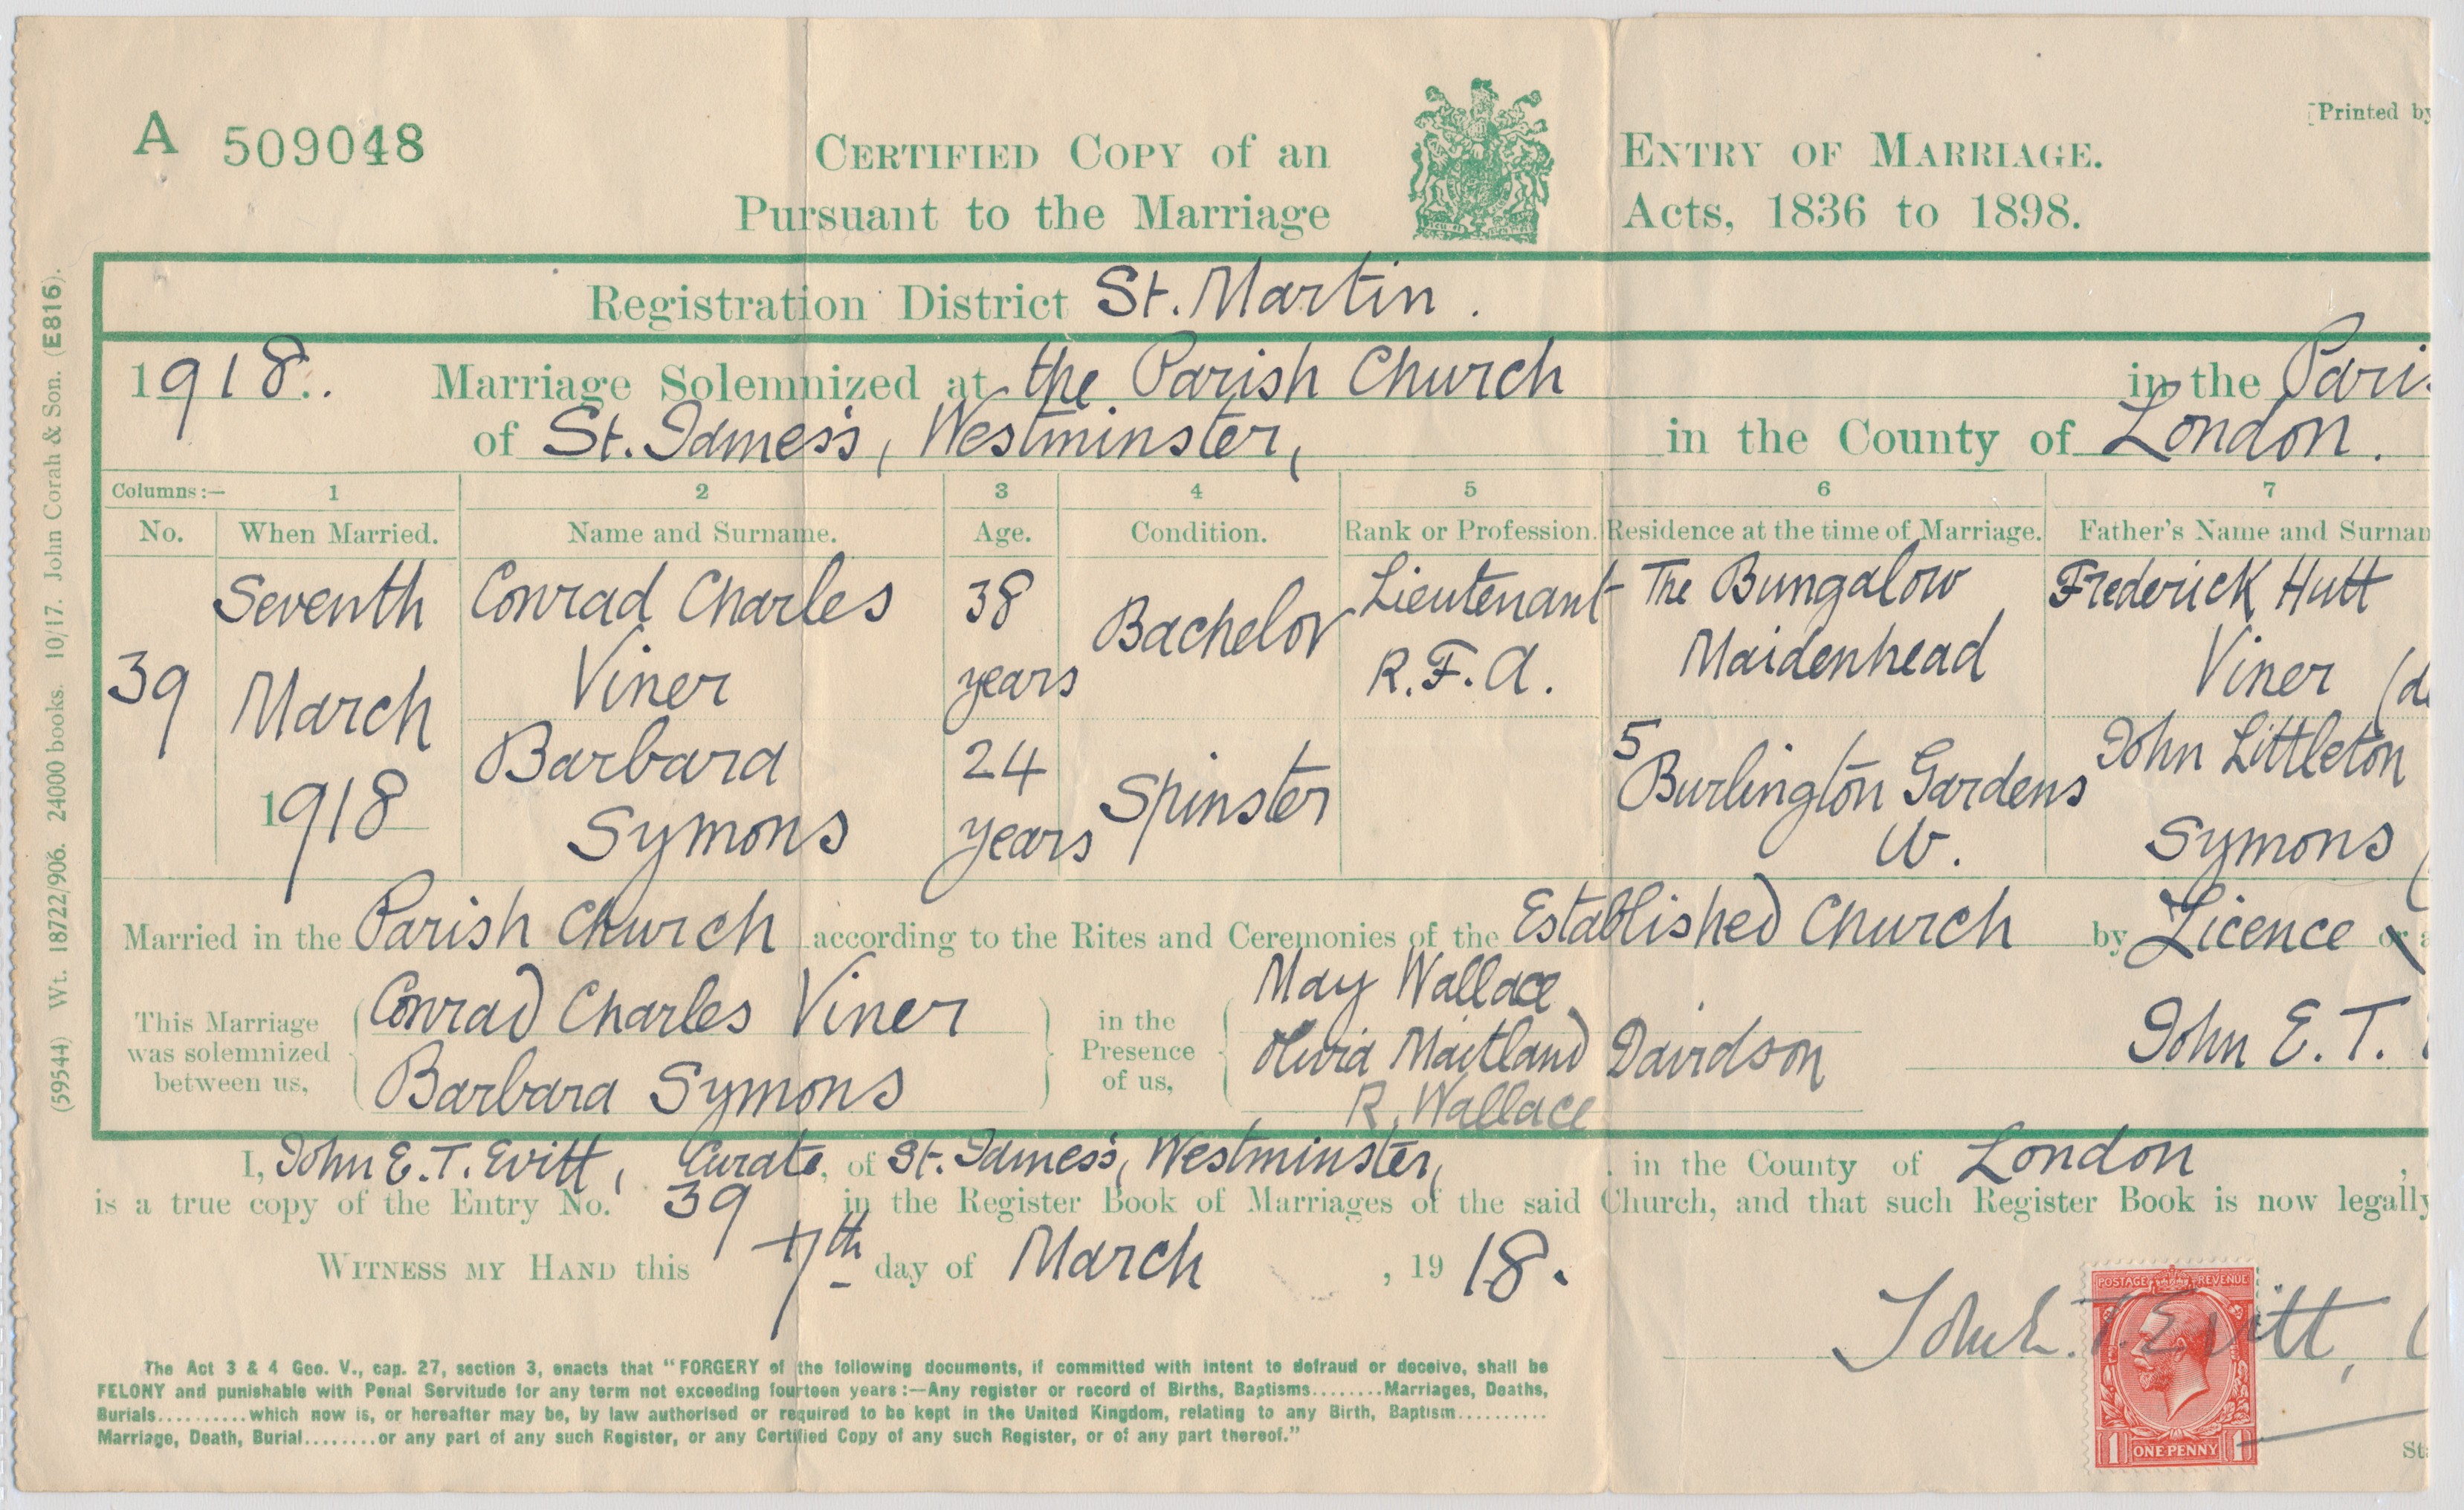 A 509048
CERTIFIED COPY of an ENTRY OF MARRIAGE.
[Printed by
Pursuant to the Marriage Acts, 1836 to 1898.
Registration District St. Martin.
1918. Marriage Solemnized at the Parish Church in the Paris
of St. James's, Westminster, in the County of London.
Columns:— 1 2 3 4 5 6 7
No. When Married. Name and Surname. Age. Condition. Rank or Profession. Residence at the time of Marriage. Father's Name and Surnam
39 Seventh March 1918
Conrad Charles Viner 38 years Bachelor Lieutenant R.F.A. The Bungalow Maidenhead Frederick Hutt Viner (d
Barbara Symons 24 years Spinster 5 Burlington Gardens W. John Littleton Symons (
Married in the Parish Church according to the Rites and Ceremonies of the Established Church by Licence or a
This Marriage was solemnized between us, Conrad Charles Viner Barbara Symons in the Presence of us, May Wallace Olivia Maitland Davidson R. Wallace John E. T.
I, John E. T. Evitt, Curate, of St. James's, Westminster, in the County of London,
is a true copy of the Entry No. 39 in the Register Book of Marriages of the said Church, and that such Register Book is now legally
WITNESS MY HAND this 7th day of March, 1918.
John E. T. Evitt, (
POSTAGE REVENUE
1 ONE PENNY 1
The Act 3 & 4 Geo. V., cap. 27, section 3, enacts that "FORGERY of the following documents, if committed with intent to defraud or deceive, shall be
FELONY and punishable with Penal Servitude for any term not exceeding fourteen years:—Any register or record of Births, Baptisms........Marriages, Deaths,
Burials..........which now is, or hereafter may be, by law authorised or required to be kept in the United Kingdom, relating to any Birth, Baptism..........
Marriage, Death, Burial........or any part of any such Register, or any Certified Copy of any such Register, or of any part thereof."
St
(59544) Wt. 18722/906. 24000 books. 10/17. John Corah & Son. (E816).